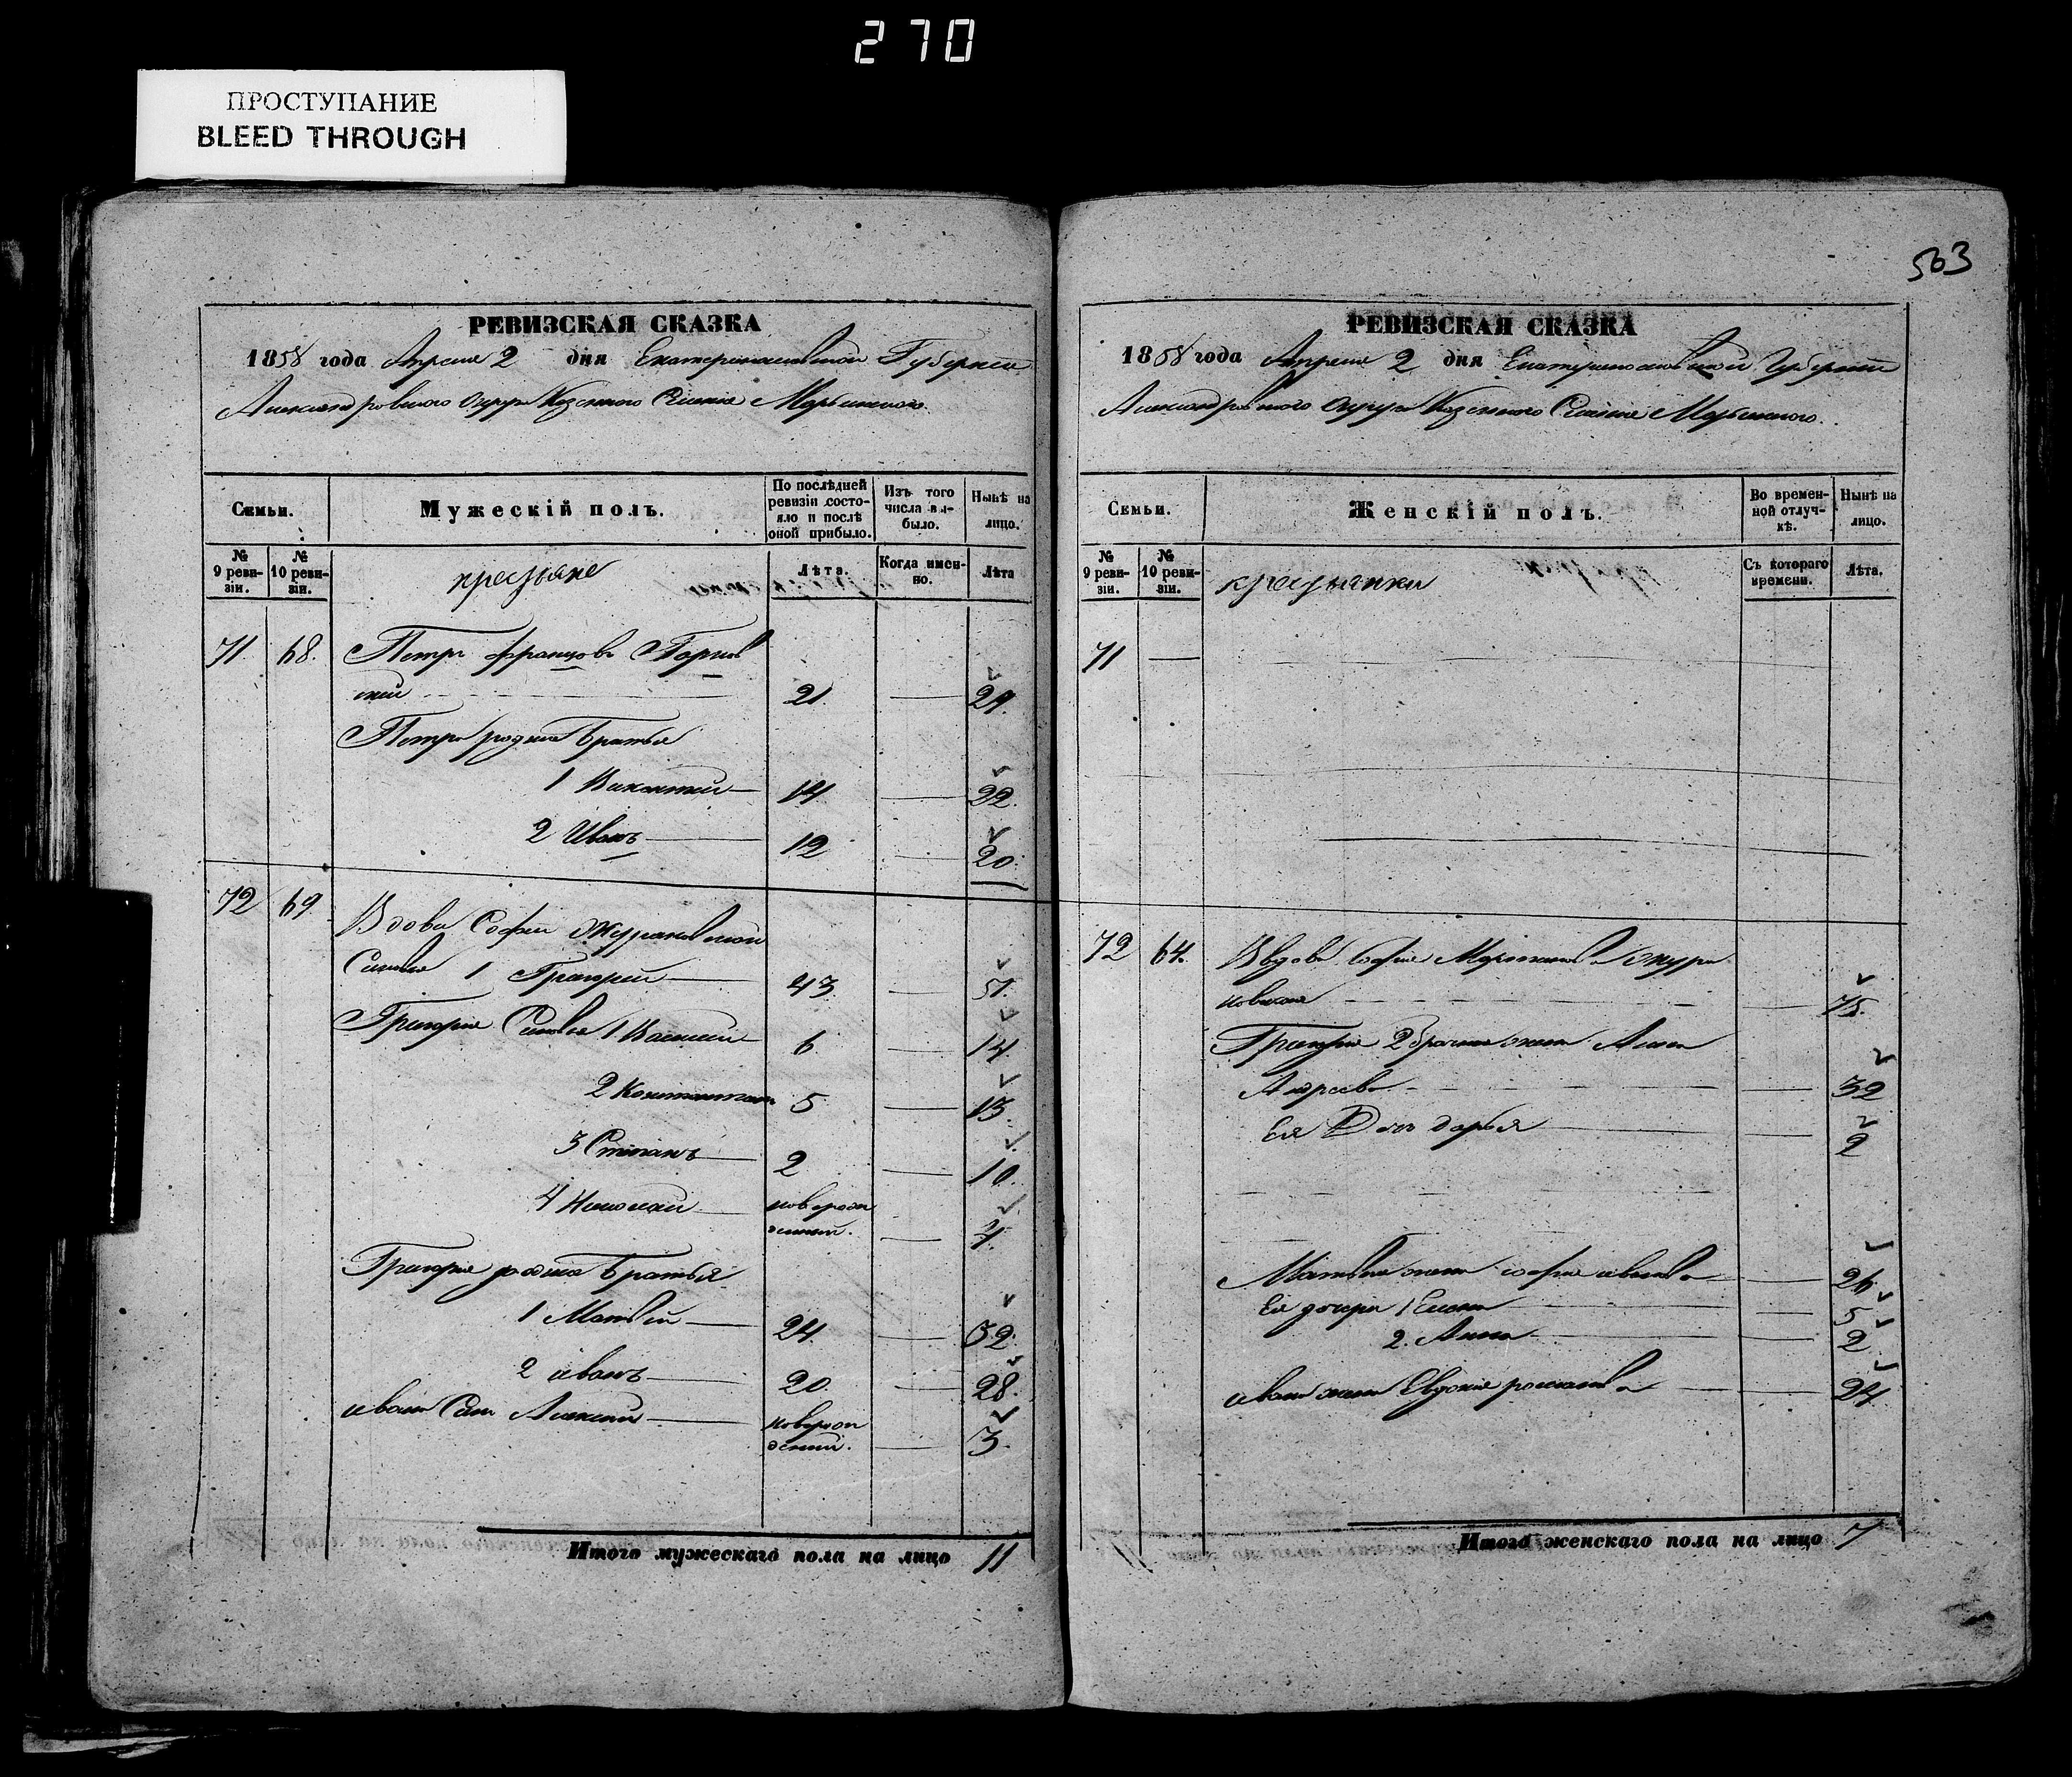 270
ПРОСТУПАНИЕ
BLEED THROUGH
563
РЕВИЗСКАЯ СКАЗКА
1858 года Апреля 2 дня Екатеринославской Губернии
Александровского Округа Казенного Селения Марьинского.
Семьи.
Мужескій полъ.
По послѣдней ревизіи состояло и послѣ оной прибыло.
Изъ того числа выбыло.
Нынѣ на лицо.
№ 9 ревизіи.
№ 10 ревизіи.
крестьяне
Лѣта.
Когда именно.
Лѣта
71. 68. Петръ Францовъ
ский 21. 29.
Петра родные братья
1 Викентий 14 22.
2 Иванъ 12 20.
72 69 Вдовы Софии Жураковской
Сыновья 1 Григорий 43 51.
Григория Сыновья 1 Василий 6 14.
2 Константин 5 13.
3 Степанъ 2 10.
4 Николай новорож
денный. 4.
Григория родные братья
1 Матвей 24 32.
2 иванъ 20. 28.
ивана Сын Алексей новорож
денний. 3.
Итого мужескаго пола на лицо 11
РЕВИЗСКАЯ СКАЗКА
1858 года Апреля 2 дня Екатеринославской Губернии
Александровского Округа Казенного Селения Марьинского.
Семьи.
Женскій полъ.
Во временной отлучкѣ.
Нынѣ на лицо.
№ 9 ревизіи.
№ 10 ревизіи.
крестьянки
Съ котораго времени.
Лѣта.
71
72 64. Вдова София Журa
ковская 75.
Григория 2 брачная жена Анна
32
Ея Дочь дарья 2
Матвея жена софия иванова 26
Ея дочери 1 Елена 5
2. Анна 2
ивана жена Евдокия романова 24
Итого женскаго пола на лицо 7